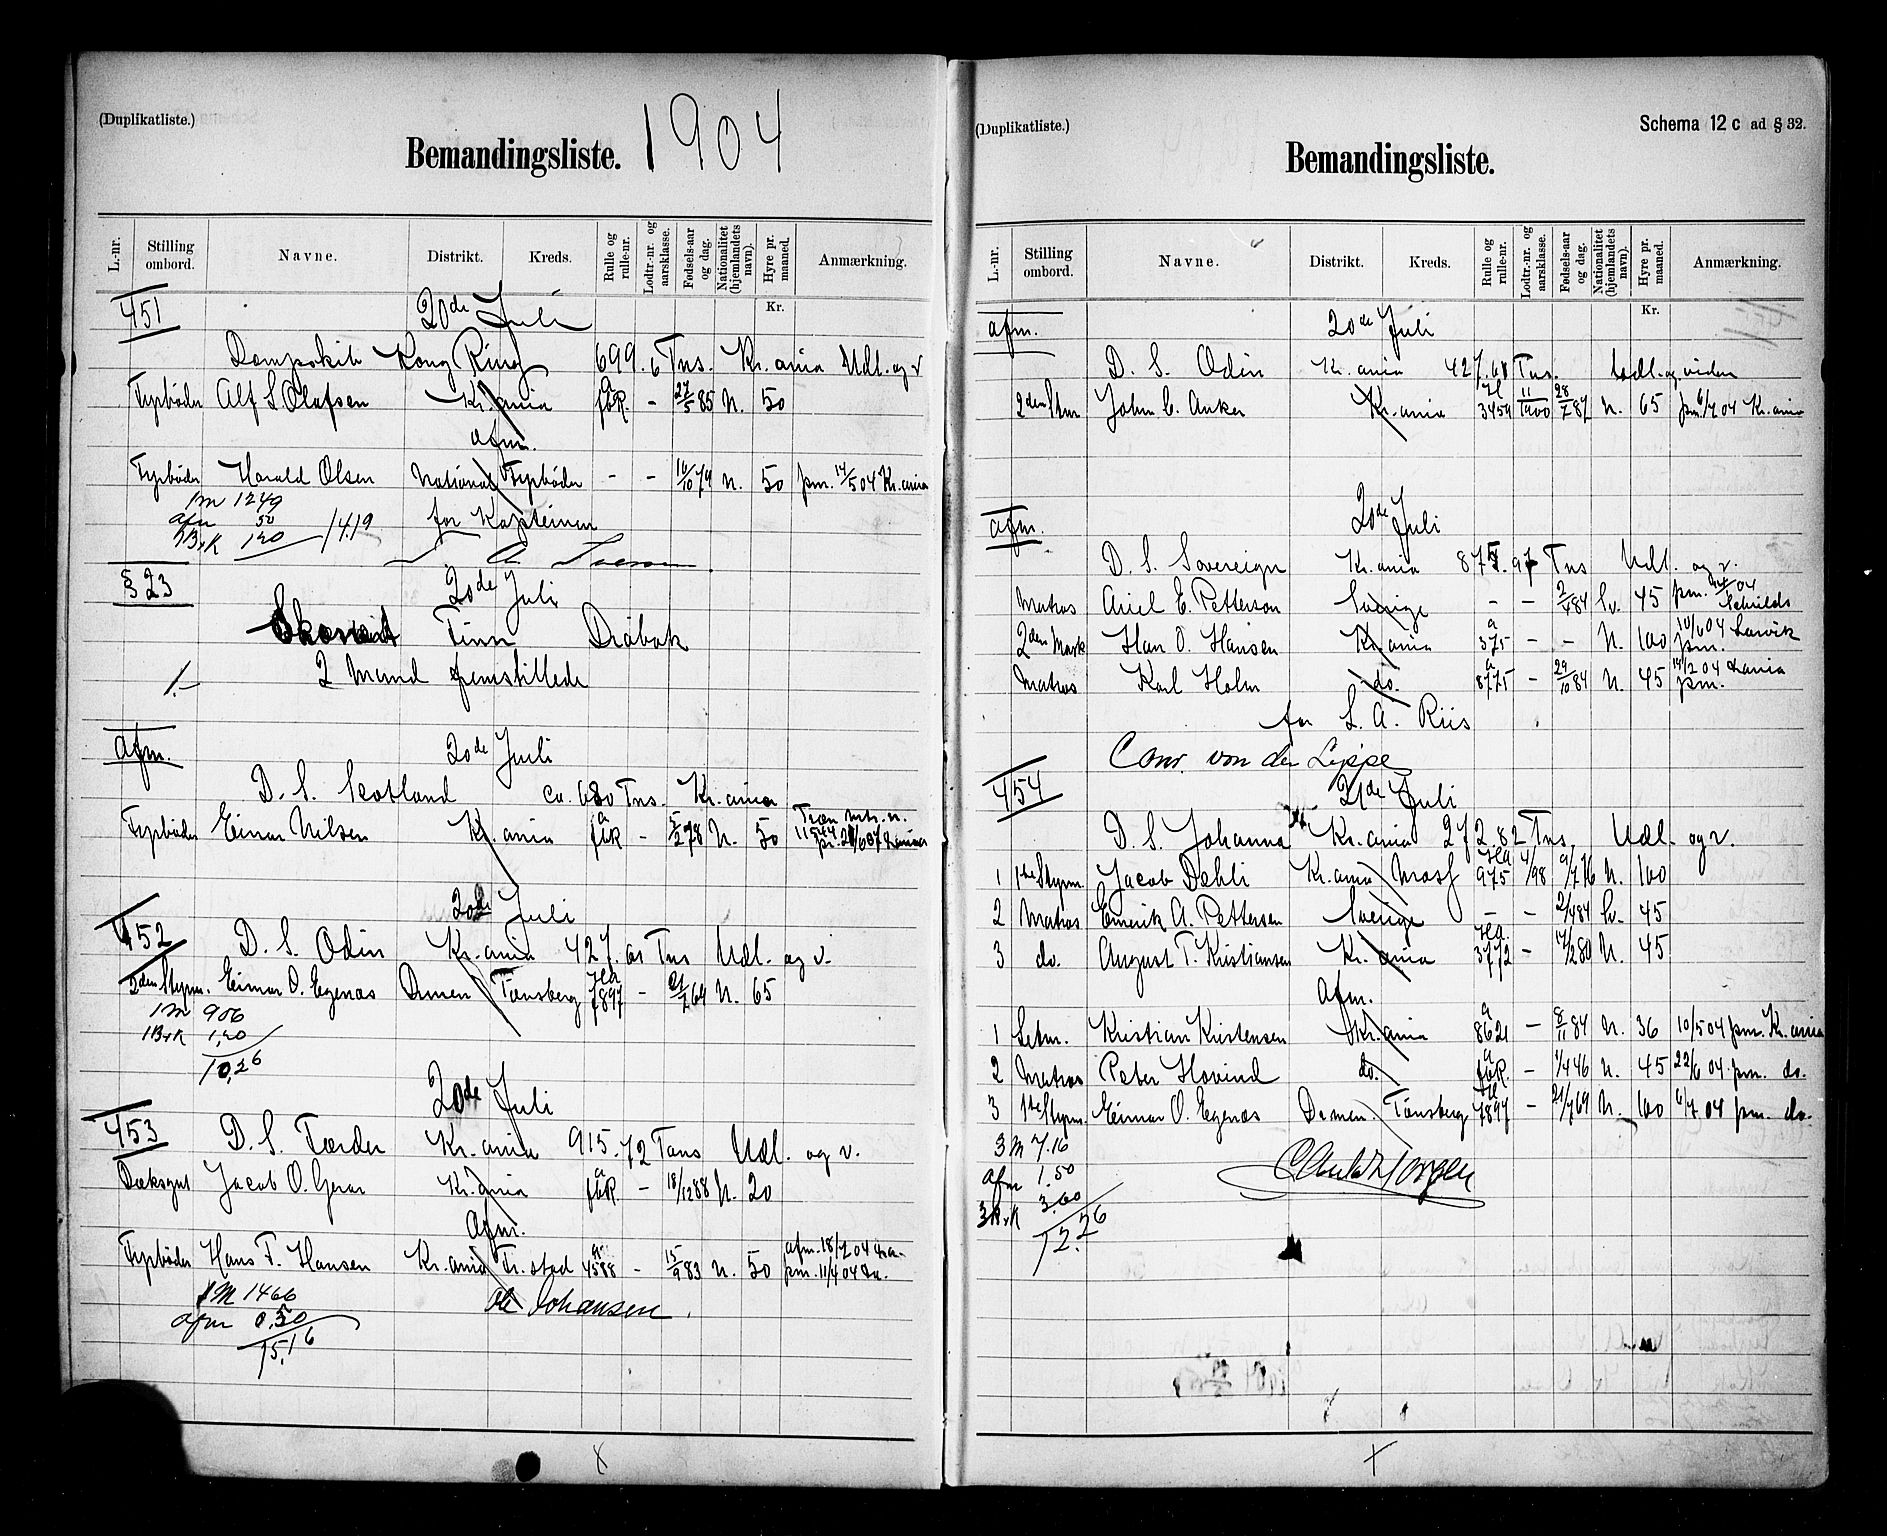 (Duplikatliste.)
Bemandingsliste. 1904
L.-nr. Stilling ombord. Navne. Distrikt. Kreds. Rulle og rulle-nr. Lodtr.-nr. og aarsklasse. Fødsels-aar og dag. Nationalitet (hjemlandets navn). Hyre pr. maaned. Anmærkning.
Kr.
451 20de Juli
Dampskib Kong Ring 699.6 Tns. Kr.ania Udl. og v
Fyrbøder Alf S Olafsen Kr.ania a fbR. - 27/5 85 N. 50
afm.
Fyrbøder Harald Olsen National Fyrbøder - - 10/10 79 N. 50 pm. 14/5 04 Kr.ania
1m 1249
afm 50 for Kapteinen
1B&K 120 /1419
§ 23 20de Juli
Finn Drøbak
1.- 2 Mand fremstillede
afm. 20de Juli
D. S. Scotland ca. 680 Tns. Kr.ania
Fyrbøder Einar Nilsen Kr.ania a fbR - 5/2 78 N. 50
452 20de Juli
D. S. Odin Kr.ania 427.68 Tns Udl. og v.
2den Styrm. Einar O. Egenæs Dmmen Tønsberg Ha 7897 - 21/7 69 N. 65
1m 906
1B&K 1,20
10,26
20de Juli
453 D. S. Færder Kr.ania 915.72 Tons Udl. og v.
Dæksgut Jacob O. Gran Kr.ania a fbR. - 18/12 88 N. 20
Afm.
Fyrbøder Hans F. Hansen Kr.ania Fr.stad 4588 - 15/9 83 N. 50 afm. 18/7 04
pm. 11/4 04
1M 1466 Ole Johansen.
afm 0.50
15,16
(Duplikatliste.) Schema 12 c ad § 32.
Bemandingsliste.
L.-nr. Stilling ombord. Navne. Distrikt. Kreds. Rulle og rulle-nr. Lodtr.-nr. og aarsklasse. Fødsels-aar og dag. Nationalitet (hjemlandets navn). Hyre pr. maaned. Anmærkning.
Kr.
afm. 20de Juli
D. S. Odin Kr.ania 427.68 Tns. Udl. og videre
2den Stm John C. Anker Kr.ania Hl 3459 11/1900 28/7 87 N. 65 pm. 6/7 04 Kr.ania
afm. 20de Juli
D. S. Sovereign Kr.ania 875.97 Tns Udl. og v.
Matros Ariel E. Petterson Sverige - - 2/4 84 Sv. 45 pm.
2den Mask Han O. Hansen Kr.ania a 375 - - N. 100 10/6 04 Larvik pm.
Matros Karl Holm do. a 8775 - 29/10 84 N. 45 14/2 04 pm.
for S. A. Riis
Conr. von der Lippe
454 21de Juli
D. S. Johanna Kr.ania 272.82 Tns. Udl. og v.
1 1ste Styrm. Jacob Dehli Kr.ania Moss Ha 975 4/98 9/7 76 N. 100
2 Matros Emerik A. Pettersen Sverige - - 2/4 84 Sv. 45
3 do. August T. Kristiansen Kr.ania Ha. 3772 - 14/2 80 N. 45
Afm.
1 Letm. Kristian Kristensen Kr.ania a 8621 - 8/11 84 N. 36 10/5 04 pm. Kr.ania
2 Matros Peter Hovind do. a fbR. - 1/4 46 N. 45 22/6 04 pm. do.
3 1ste Styrm. Einar O. Egenæs Dmmen. Tønsberg Hl 7897 - 21/7 69 N. 100 6/7 04 pm. do.
3 M 7.16
afm 1.50
3B&K 3.60
12.26